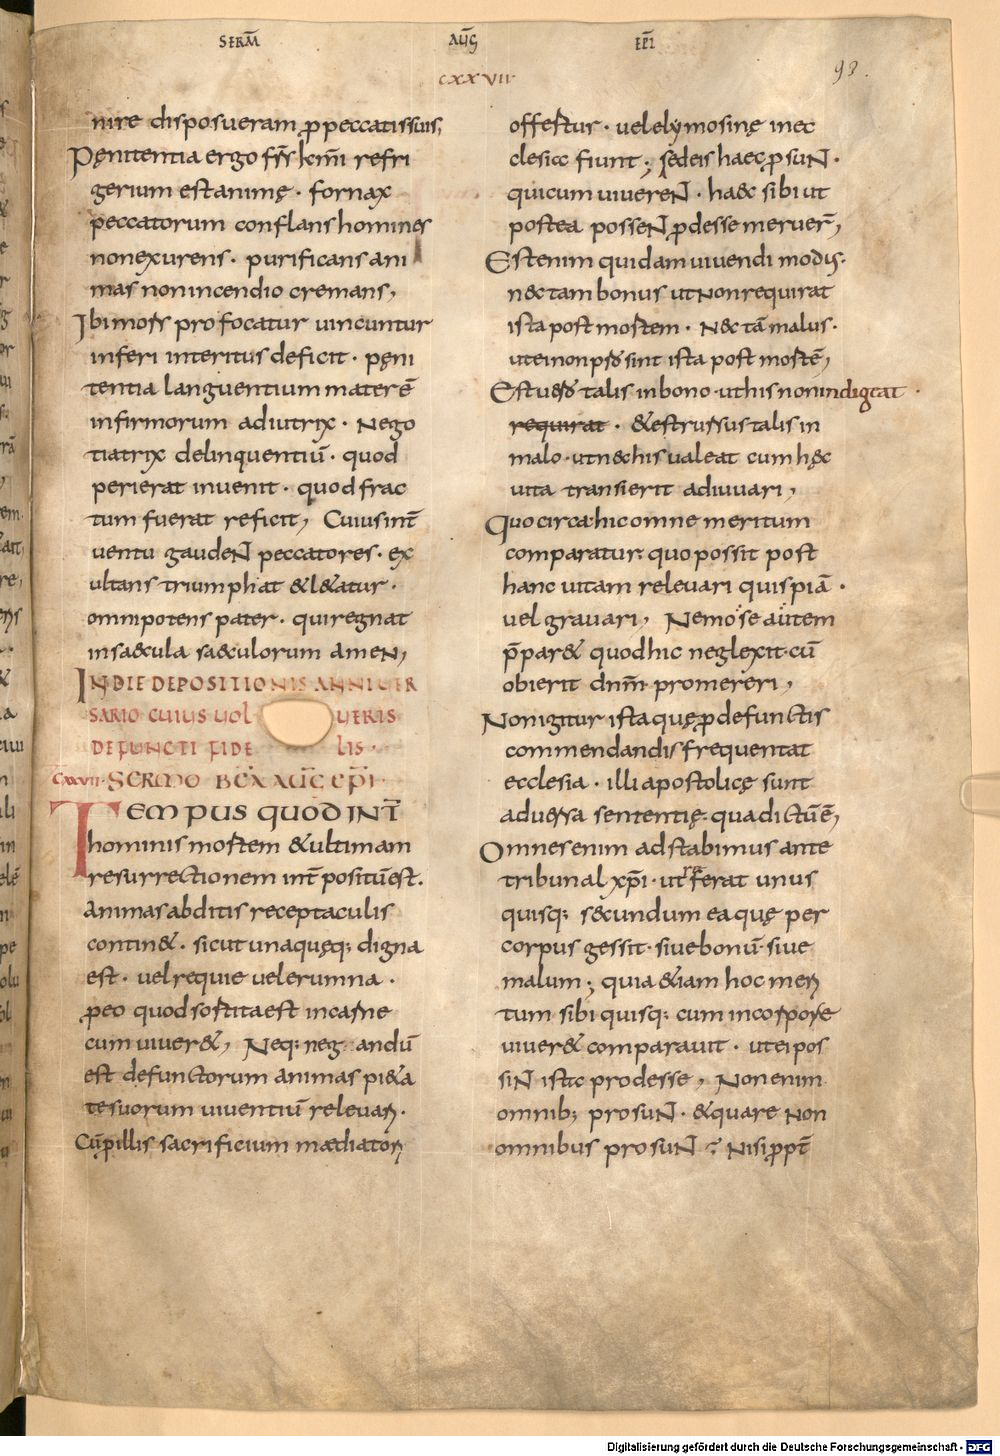 SERM̄ AUḠ EPĪ
CXXVII
93.
nire disposueram ꝓpeccatissuis,
Pęnitentia ergo fr̄s km̄i refri
gerium estanimę · fornax
peccatorum conflans homines
nonexurens · purificans ani
mas nonincendio cremans,
Ibi mors profocatur uincuntur
inferi interitus deficit · pęni
tentia languentium materē
infirmorum adiutrix · Nego
tiatrix delinquentiū · quod
perierat inuenit · quod frac
tum fuerat reficit, Cuius int̄
uentu gaudeNT peccatores · ex
ultans triumphat &l&atur ·
omnipotens pater · qui regnat
insaecula saeculorum ameN,
IN DIE DEPOSITIONIS ANNIUER
SARIO CUIUS UOL UERIS
DEFUNCTI FIDE LIS ·
CXXVII · SERMO BEA AUG̅ EPI ·
TEMPUS QUOD INT̄
hominis mortem &ultimam
resurrectionem int̄ positūest.
Animas abditis receptaculis
contin& · sicut unaquęq; digna
est · uel requie uel erumna ·
ꝓeo quod sortita est incarne
cum uiuer&, Neq; neg andū
est defunctorum animas pi&a
te suorum uiuentiū releuari ·
Cūꝓillis sacrificium mediatoris
offertur · uel elymosinę inec
clesia fiunt ; sedeis haec ꝓsuNT ·
qui cum uiuereNT · haec sibi ut
postea posseNT ꝓdesse meruer̄,
Est enim quidam uiuendi modus ·
nectam bonus ut Nonrequirat
ista post mortem · Nec tā malus ·
ut ei non prosint ista post mortē,
Est uero talis inbono · ut his nonindigeat ·
requirat · &est rursus talis in
malo · ut nechis ualeat cum hęc
uita transierit adiuuari,
Quo circa · hic omne meritum
comparatur quo possit post
hanc uitam releuari quispiā ·
uel grauari, Nemo se autem
p̄par& quod hic neglexit · cū
obierit dnm̄ promereri,
Non igitur ista quę ꝓdefunctis
commendandis frequentat
ecclesia · illi apostolicę sunt
aduersa sententię · qua dictūē,
Omnes enim adstabimus ante
tribunal xp̄i · ut referat unus
quisq; secundum ea quę per
corpus gessit · siue bonū · siue
malum ; quia &iam hoc meri
tum sibi quisq; cum incorpore
uiuer& comparauit · ut ei pos
siNT ista prodesse, Non enim
omnib; prosuNT · &quare Non
omnibus prosuNT ? Nisi ꝓpt̄
Digitalisierung gefördert durch die Deutsche Forschungsgemeinschaft - DFG